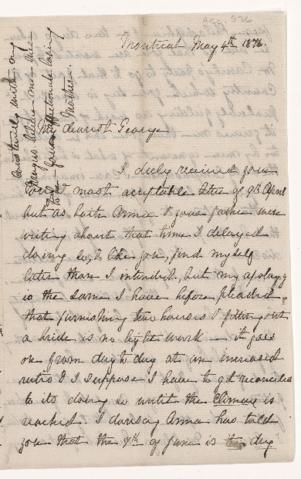 Montreal May 4th 1876.
My dearest George
I duly received your
most acceptable letter of 9th April
but as both Anna & your father were
writing about that time I delayed
doing so, & like you, find myself
later than I intended, but my apology
is the same I have before pleaded,
that furnishing two houses & fitting out
a bride is no light work — it goes
on from day to day at an increased
ratio & I suppose I have to get reconciled
to its doing so until the climax is
reached. I daresay Anna has told
you that the 8th of June is the day
your affectionate loving
Mother